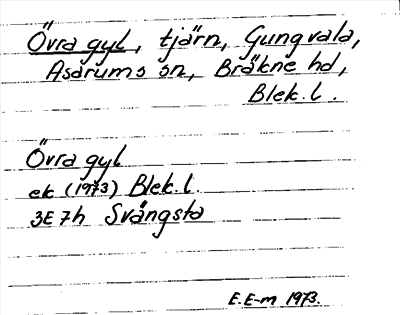 Övra gyl, tjärn, Gungvala,
Asarums sn, Bräkne hd,
Blek.l.
Övra gyl
ek (1973) Blek.l.
3E7h Svängsta
E.E-m 1973.